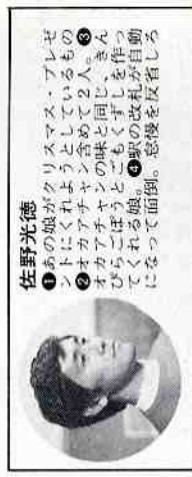 佐野光徳
❶あの娘がクリスマス・プレゼ
ントにくれようとしているもの
❷オカアチャン含めて2人。❸
オカアチャンの味と同じ、きん
ぴらごぼうとこもくずしを作っ
てくれる娘。❹駅の改札が自動
になって面倒。怠慢を反省しろ